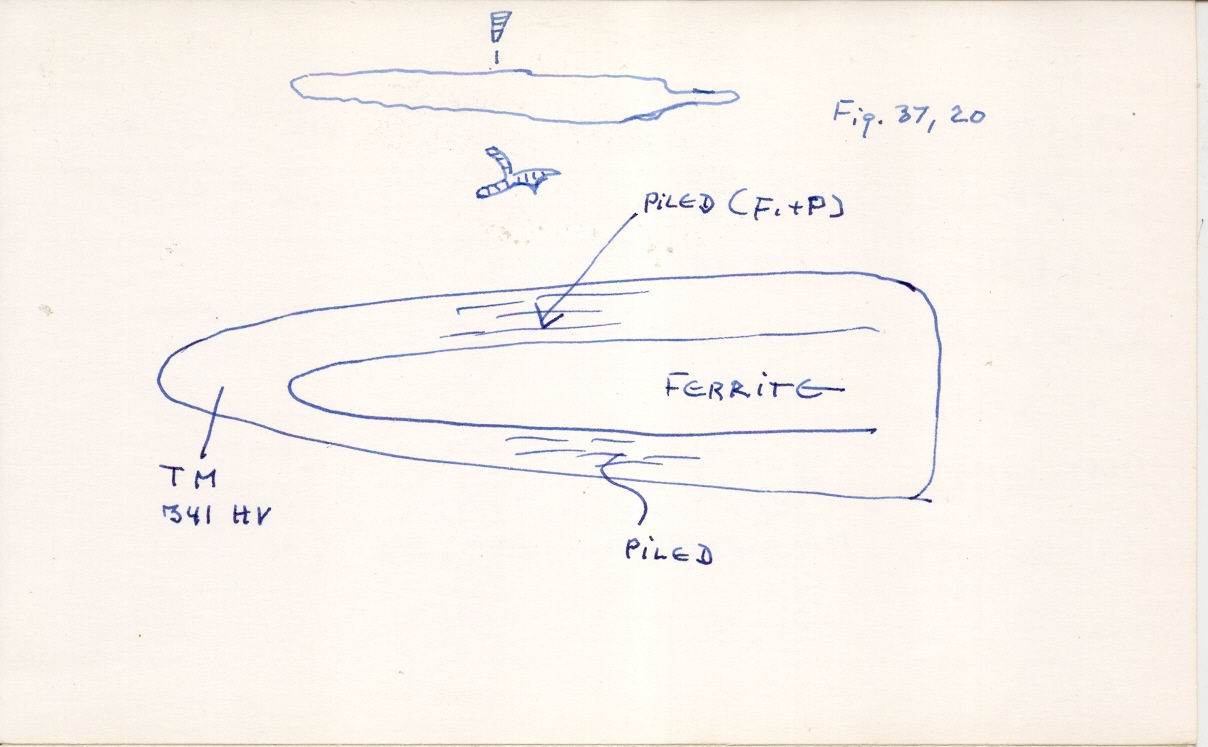 Fig. 37, 20
PiLED (F.+P)
FERRiTE
TM
341 HV
PiLED